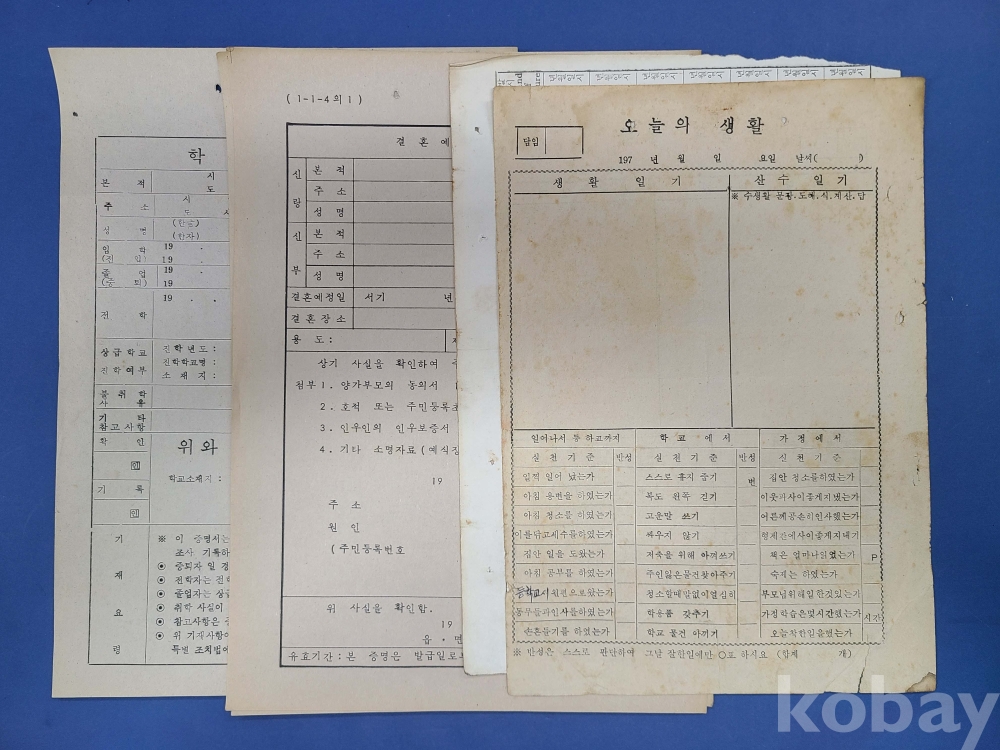 학
본 적
시
도
주 소
시
도 시
성 명
(한글)
(한자)
입 학
(전 입)
19 .
19 .
졸 업
(중 퇴)
19 .
19 .
전 학
19 . .
상급학교
진학여부
진학년도 :
진학학교명 :
소 재 지 :
불취학
사 유
기 타
참고사항
확 인
인
기 록
인
위 와
학교소재지 :
기
재
요
령
※ 이 증명서는
조사 기록하
◉ 중퇴자 일 경
◉ 전학자는 전학
◉ 졸업자는 상급
◉ 취학 사실이
◉ 참고사항은
◉ 위 기재사항이
특별 조치법에
( 1-1-4의 1 )
결 혼 예
신
랑
본 적
주 소
성 명
신
부
본 적
주 소
성 명
결혼예정일
서기 년
결혼장소
용 도 :
상기 사실을 확인하여
첨부 1. 양가부모의 동의서
2. 호적 또는 주민등록초
3. 인우인의 인우보증서
4. 기타 소명자료 (예식장
19
주 소
원 인
(주민등록번호
위 사실을 확인함.
19
읍 · 면
유효기간 : 본 증명은 발급일로부
담임
오늘의 생활
197 년 월 일 요일 날씨( )
생 활 일 기
산 수 일 기
※ 수생활 문장.도해.식.계산.답
일어나서 등 하교까지
학교 에서
가 정 에서
실 천 기 준
반성
실 천 기 준
반성
실 천 기 준
일찍 일어 났는가
스스로 휴지 줍기
번
집안 청소를하였는가
아침 용변을 하였는가
복도 왼쪽 걷기
이웃과사이좋게지냈는가
아침 청소를 하였는가
고운말 쓰기
어른께공손히인사했는가
이를닦고세수를하였는가
싸우지 않기
형제간에사이좋게지내기
집안 일을 도왔는가
저축을 위해 아껴쓰기
책은 얼마나읽었는가
P
아침 공부를 하였는가
주인잃은물건찾아주기
숙제는 하였는가
등학교시왼편으로왔는가
청소할때말없이열심히
부모님위해일한것있는가
동무들과인사를하였는가
학용품 갖추기
가정학습은몇시간했는가
시간
손흔들기를 하였는가
학교 물건 아끼기
오늘착한일을했는가
※ 반성은 스스로 판단하여 그날 잘한일에만 ○표 하시요 (합계 개)
kobay